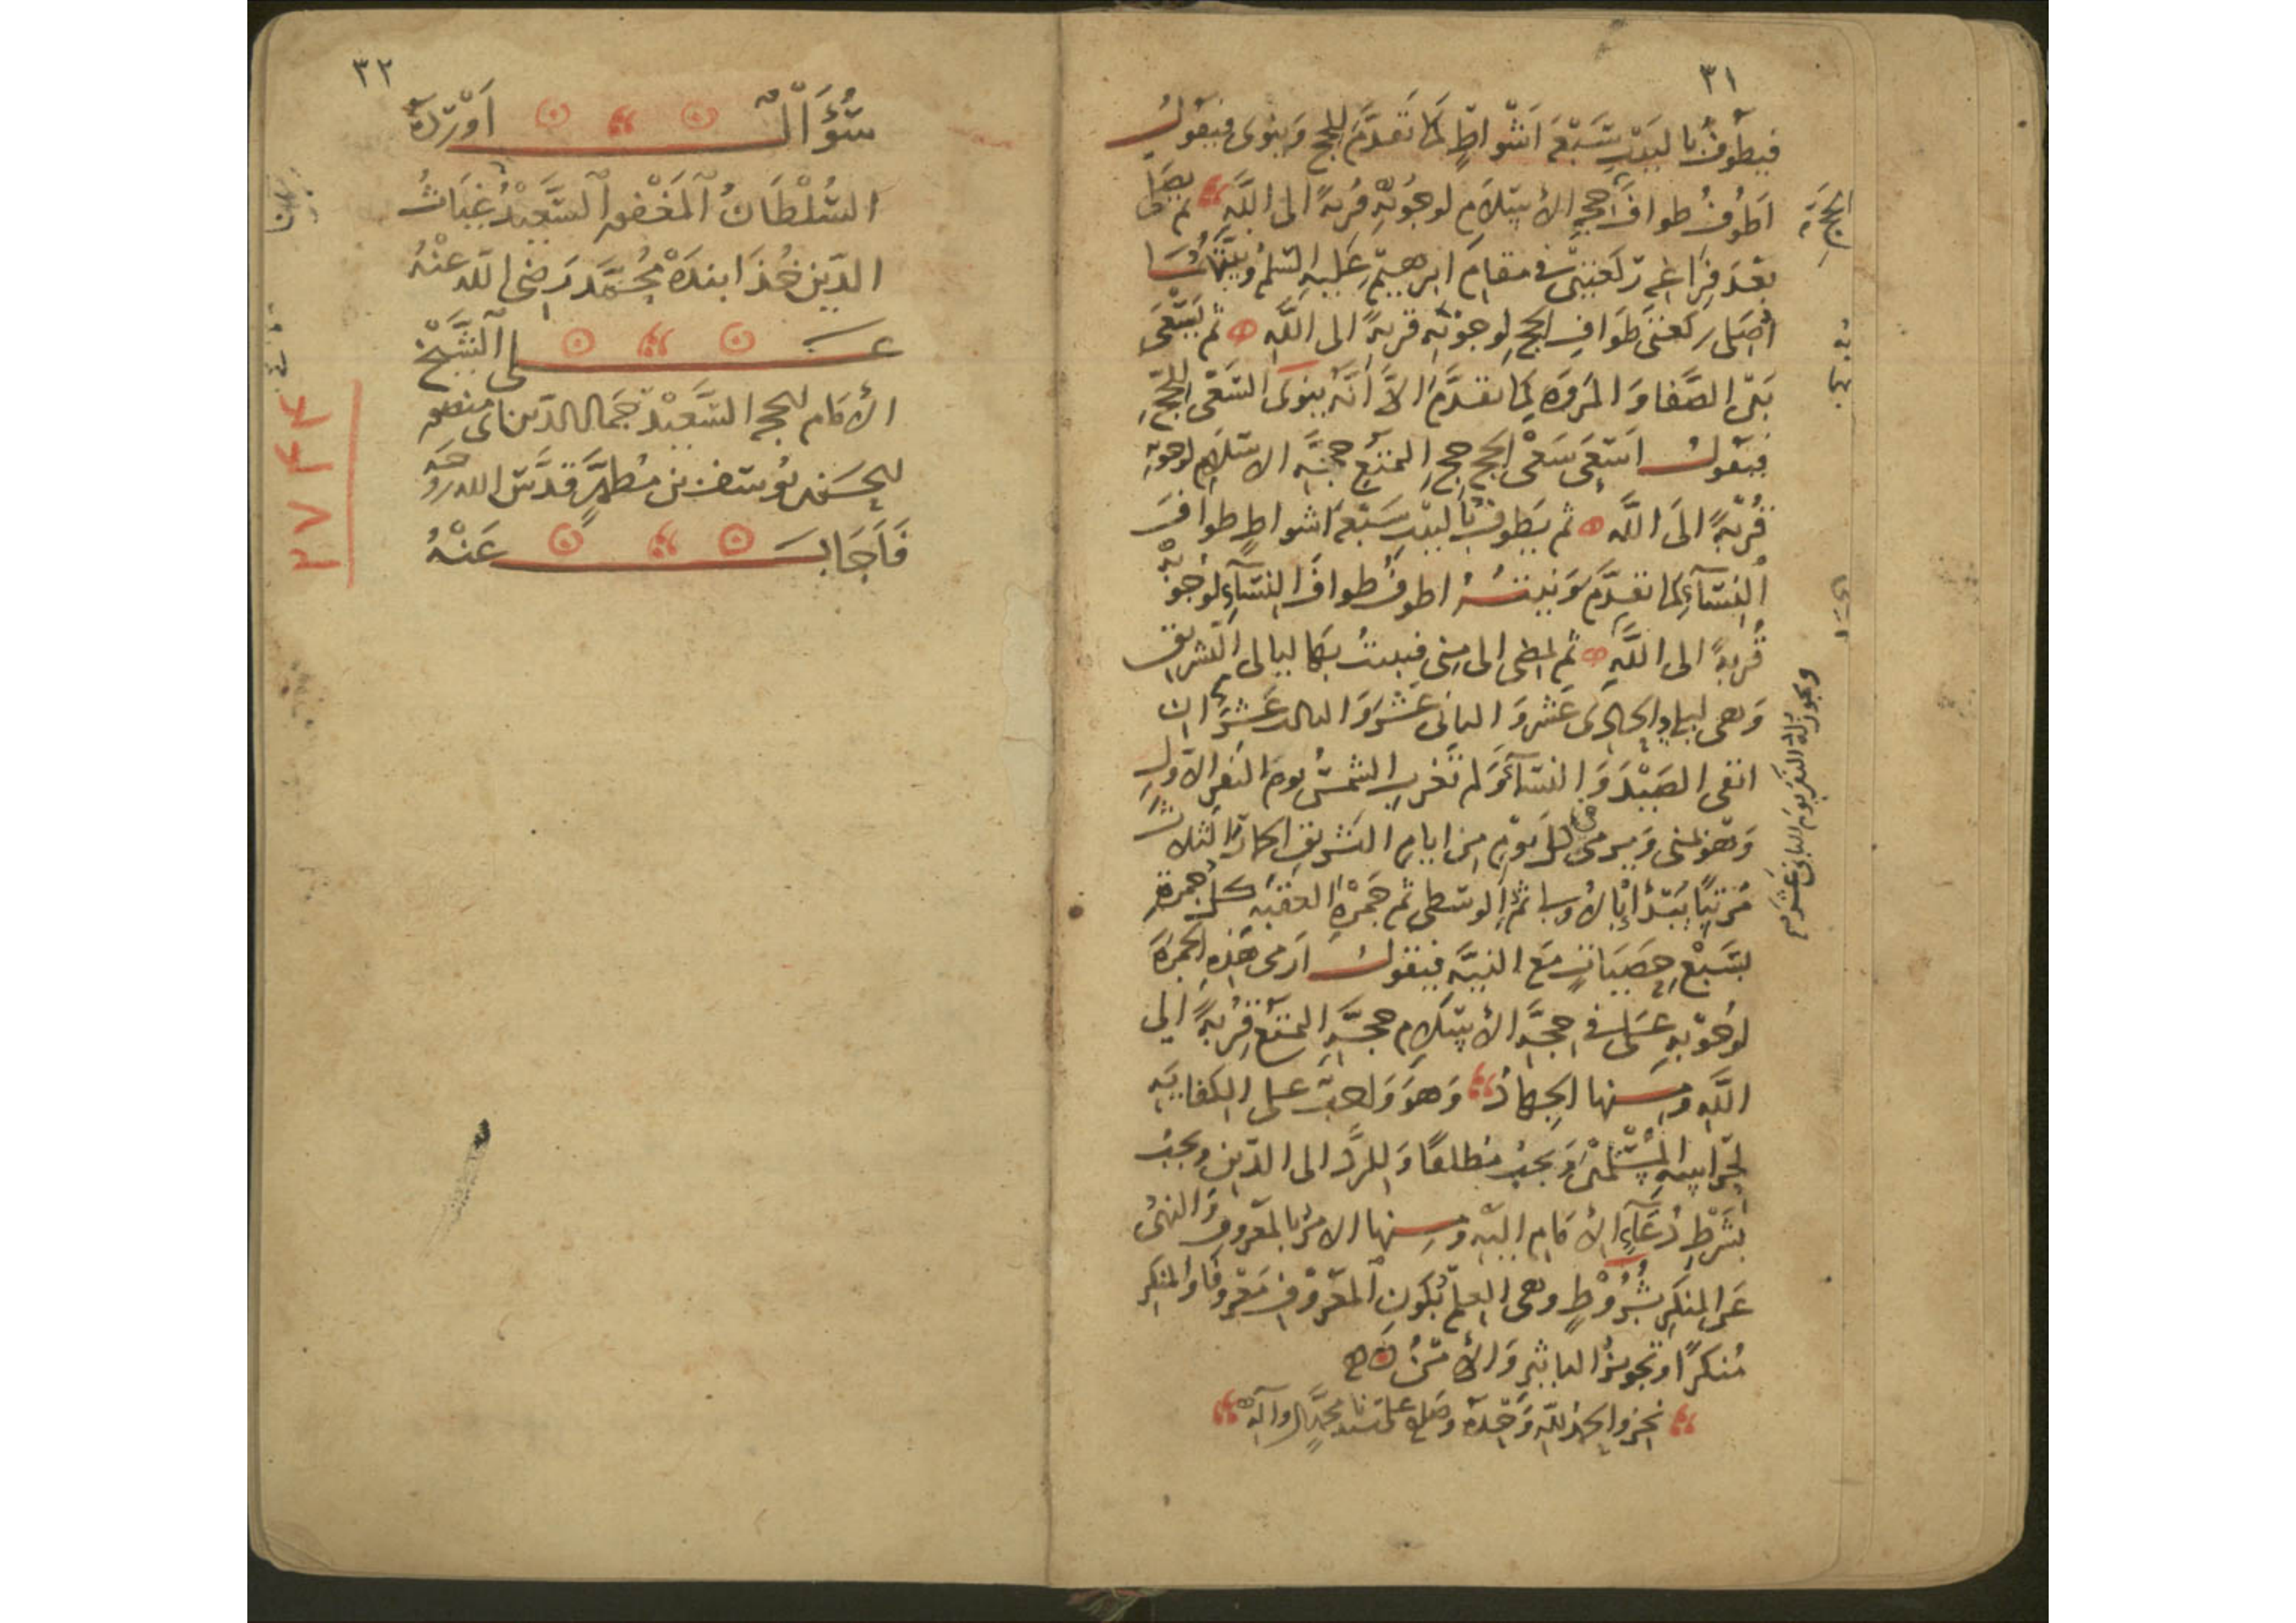 ٣١
فيطوف بالبيت سبعة اشواط كما تقدم للحج وينوى فيقول
اطوف طواف حج الاسلام لوجوبه قربة الى الله ثم يصلى
بعد فراغه ركعتين فى مقام ابرهيم عليه السلم ونيتهما
اصلى ركعتى طواف الحج لوجوبه قربة الى الله ثم يسعى
بين الصفا والمروة كما تقدم الا انه ينوى السعى للحج
فيقول اسعى سعى الحج حج التمتع حجة الاسلام لوجوبه
قربة الى الله ثم يطوف بالبيت سبعة اشواط طواف
النساء كما تقدم ونيته اطوف طواف النساء لوجوبه
قربة الى الله ثم يمضى الى منى فيبيت بها ليالى التشريق
وهى ليلة الحادى عشر والثانى عشر والثالث عشر ان
اتقى الصيد والنساء ولم تغرب الشمس يوم النفر الاول
وهو بمنى ويرمى فى كل يوم من ايام التشريق الجمار الثلاث
مرتبا يبتدأ بالاولى ثم الوسطى ثم جمرة العقبة كل جمرة
بسبع حصيات مع النية فيقول ارمى هذه الجمرة
لوجوبه على فى حجة الاسلام حجة التمتع قربة الى
الله ومنها الجهاد وهو واجب على الكفاية
لحراسة المسلمين ويجب مطلقا وللرد الى الدين ويجب
بشرط دعاء الامام اليه ومنها الامر بالمعروف والنهى
عن المنكر بشروط وهى العلم بكون المعروف معروفا والمنكر
منكرا وتجويز التاثير والأمن
نجز والحمد لله وحده وصلى على سيدنا محمد وآله
ويجوز له النفر يوم الثانى عشر
٣٢
سؤال اورده
السلطان المغفور السعيد غياث
الدين خذابنده محمد رضى الله عنه
على الشيخ
الامام الحجة السعيد جمال الدين ابى منصور
الحسن بن يوسف بن مطهر قدس الله روحه
فاجاب عنه